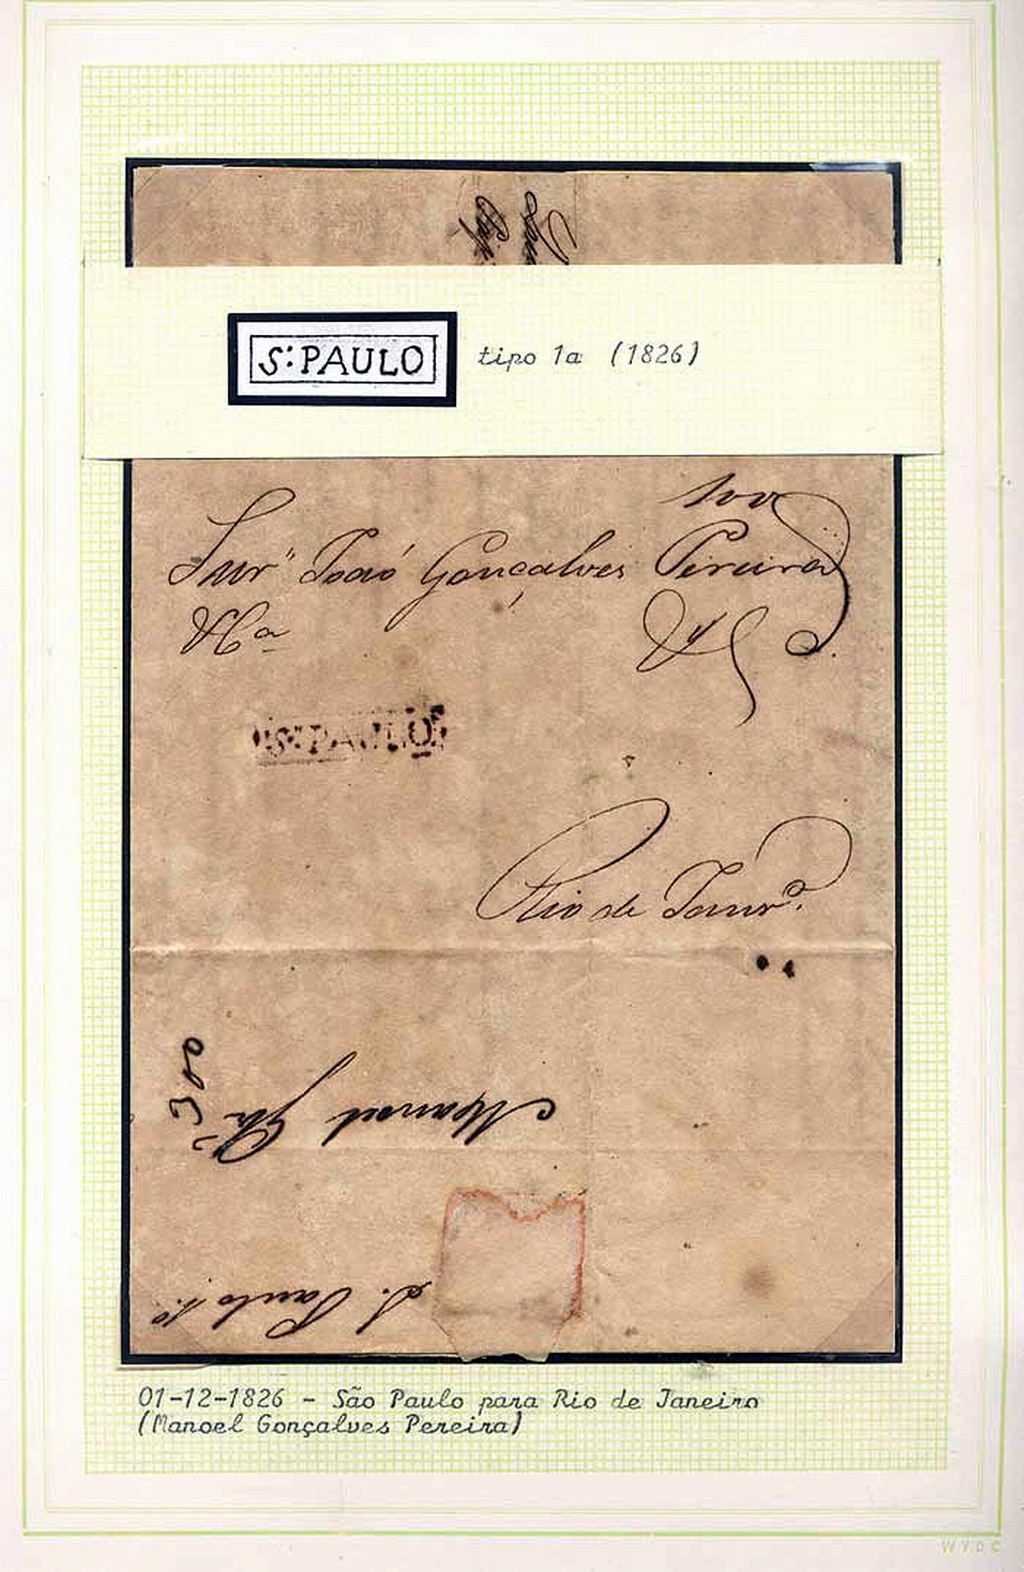 S: PAULO tipo 1a (1826)
100
Snr João Gonçalves Pereira
S: PAULO
Rio de Janr.º
300
Manoel Glz
S. Paulo 1.º
01-12-1826 - São Paulo para Rio de Janeiro
(Manoel Gonçalves Pereira)
WYDC